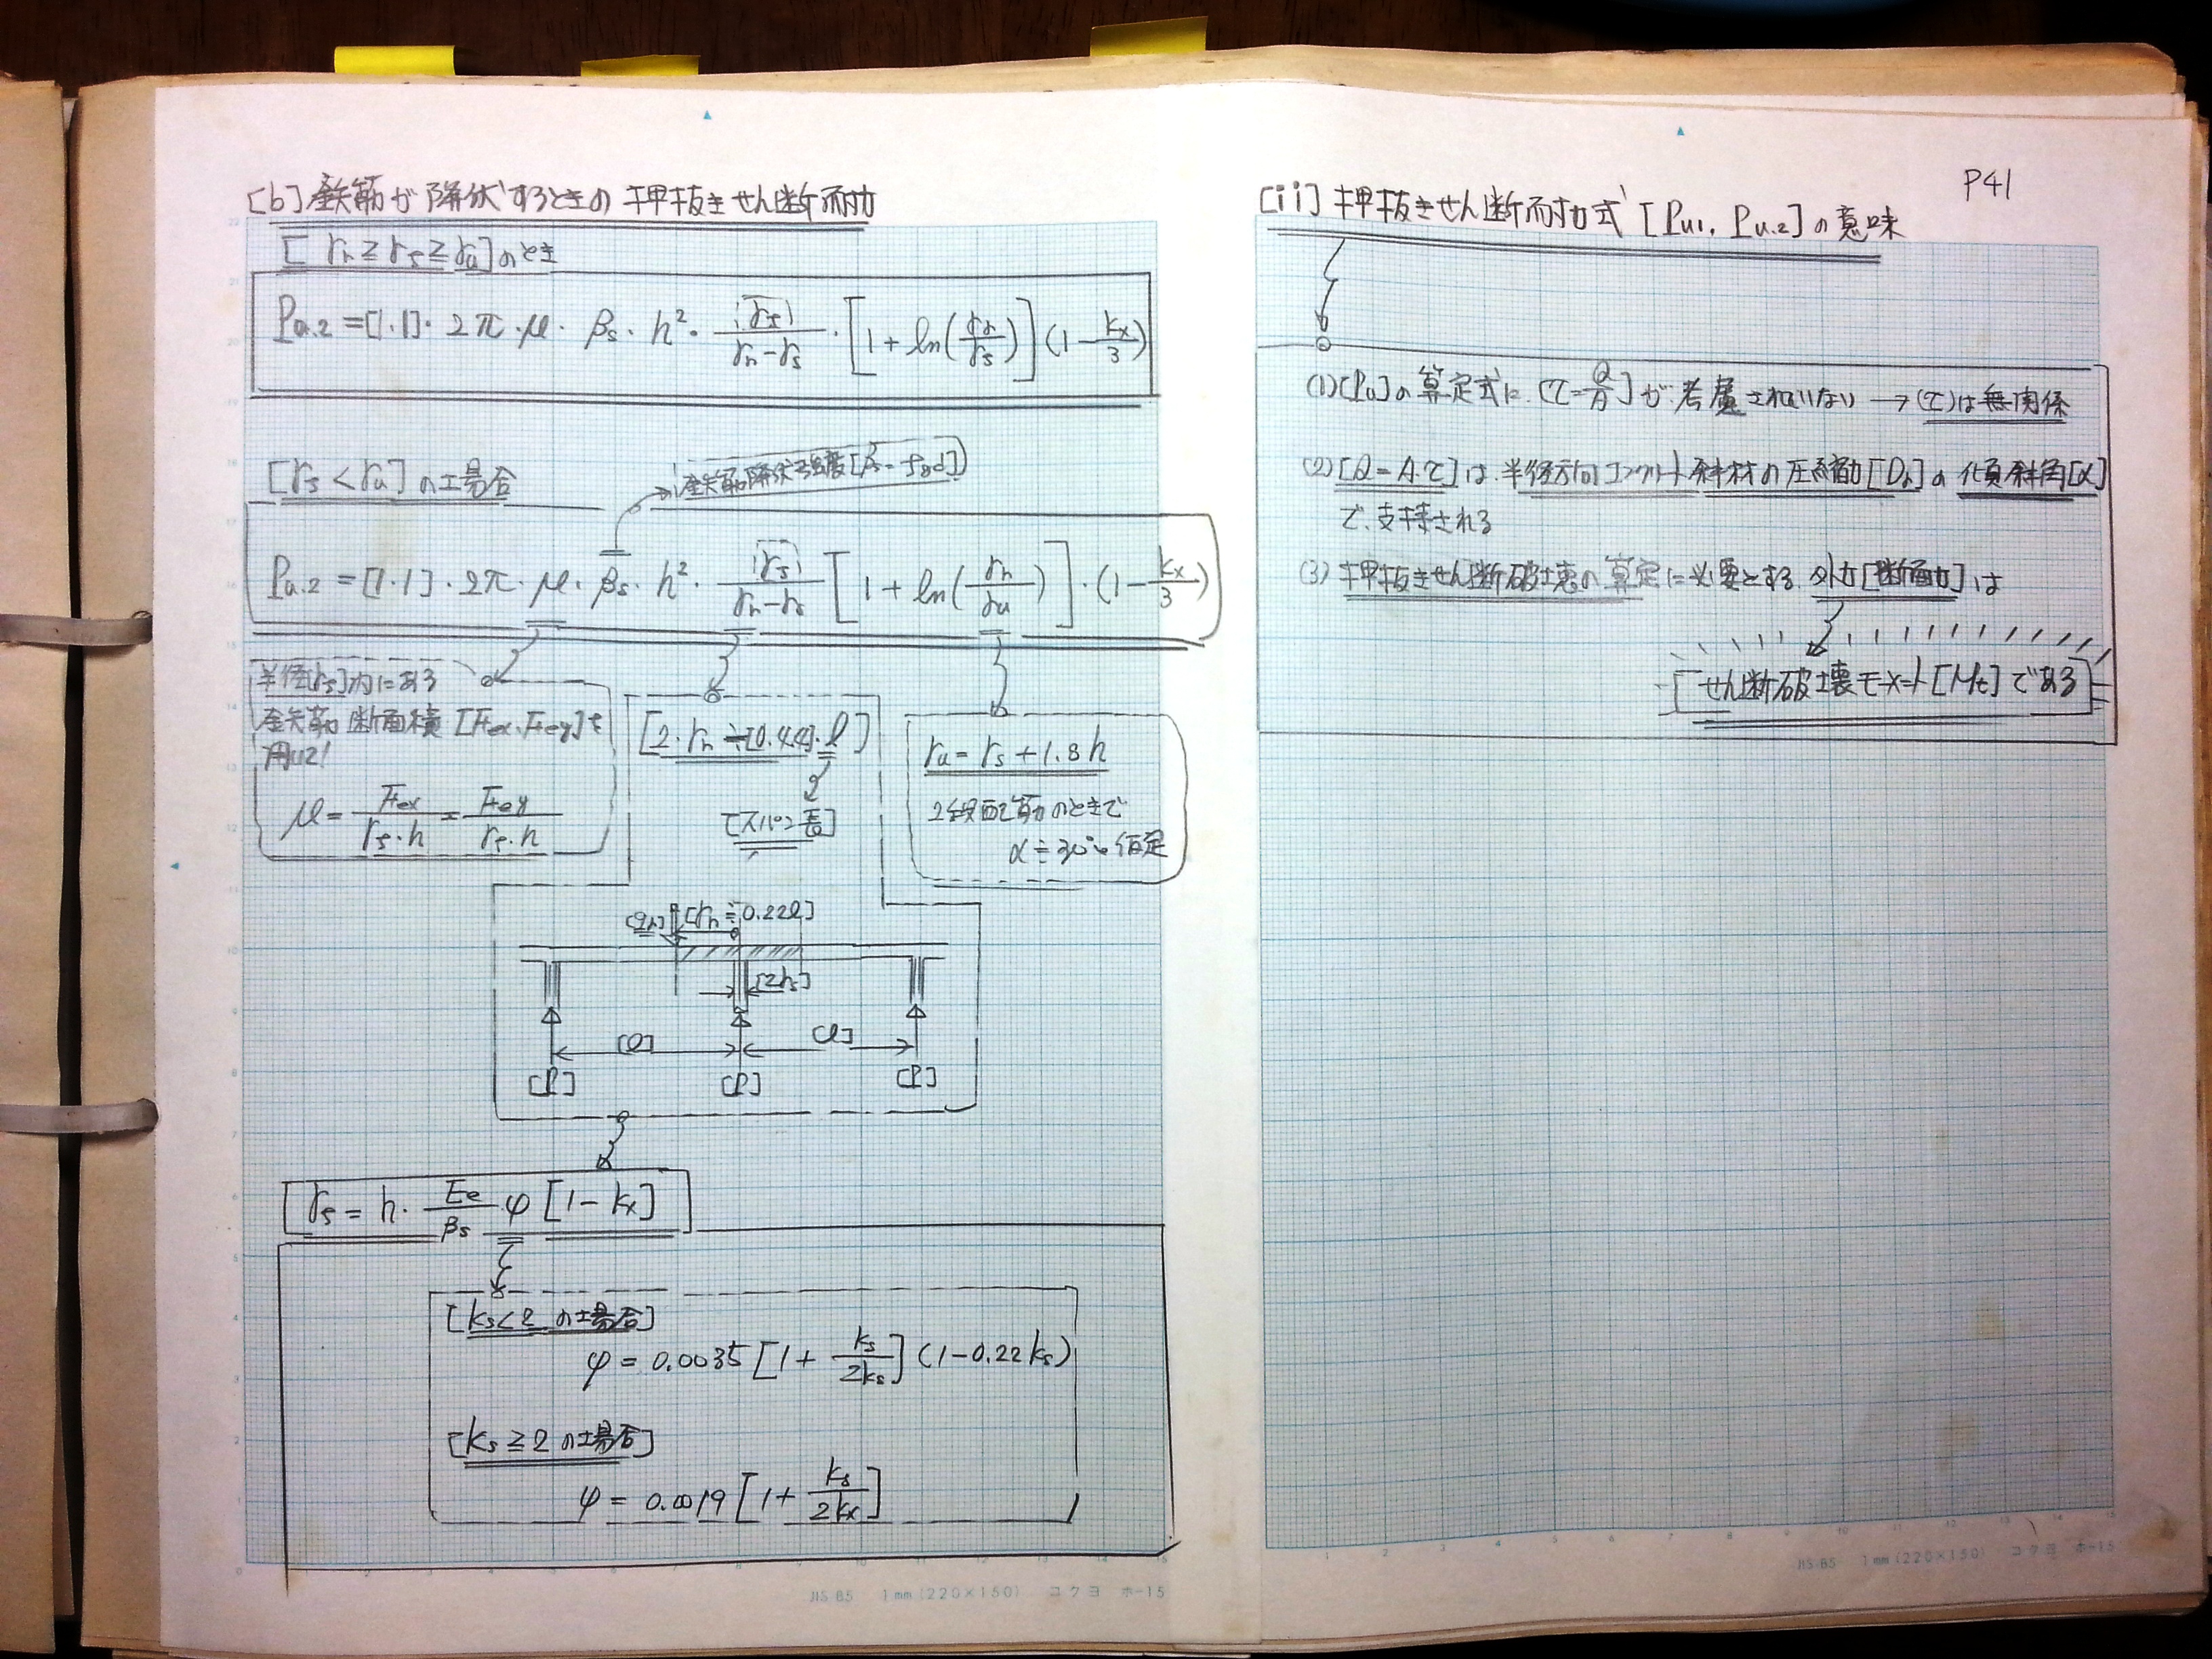 [b] 鉄筋が降伏するときの押抜きせん断耐力
[rn ≧ rs ≧ ru]のとき
Pu.2 = [1.1]・2π・μ・βs・h²・rs/(rn-rs)・[1+ln(rn/rs)](1-kx/3)
[rs < ru]の場合
鉄筋降伏強度[βs=fyd]
Pu.2 = [1.1]・2π・μ・βs・h²・[rs]/(rn-rs)[1+ln(rn/ru)]・(1-kx/3)
半径[rs]内にある
鉄筋断面積[Fex, Fey]を
用いて!
μ = Fex/(rs・h) = Fey/(rs・h)
[2・rn≒[0.44]・l]
[スパン長]
ru = rs + 1.8h
2段配筋のときで
α≒30°と仮定
[rn≒0.22l]
[2rs]
[l] [l]
[P] [P] [P]
rs = h・Ee/βs・φ[1-kx]
[ks<2 の場合]
φ = 0.0035[1+ks/2ks](1-0.22ks)
[ks≧2 の場合]
φ = 0.0019[1+ks/2kx]
JIS B5 1mm(220×150) コクヨ ホ-15
P41
[ii] 押抜きせん断耐力式[Pu1, Pu.2]の意味
(1)[Pu]の算定式に、[τ=Q/A]が考慮されていない→(τ)は無関係
(2)[Q=A・τ]は半径方向コンクリート斜材の圧縮力[Dr]の傾斜角[α]
で、支持される
(3)押抜きせん断破壊の算定に必要とする外力[断面力]は
せん断破壊モーメント[Mt]である
JIS B5 1mm(220×150) コクヨ ホ-15